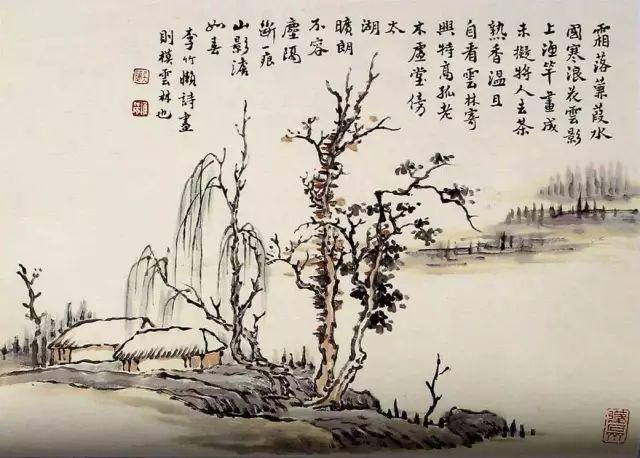 霜落蒹葭水
國寒浪花雲影
上漁竿畫成
未擬將人去茶
熟香溫且
自看雲林寄
興特高孤老
木虛堂傍
太
湖
曠朗
不容
塵隔
斷一痕
山影
如
李竹懶詩畫
則模雲林也